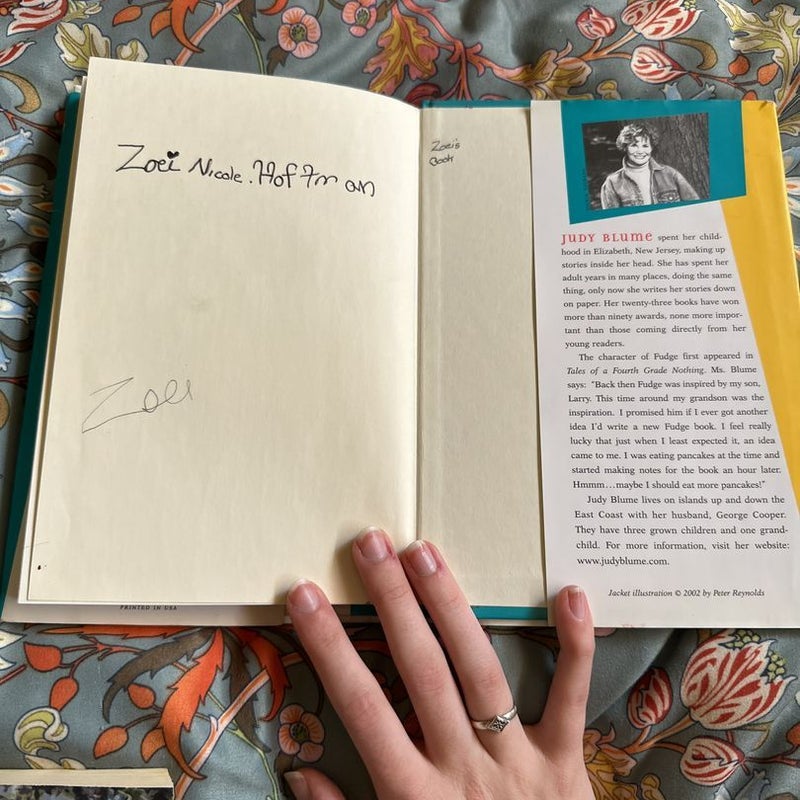 Zoei Nicole. Hoffman
Zoei
PRINTED IN USA
Zoei's
Book
JUDY BLUME spent her child-
hood in Elizabeth, New Jersey, making up
stories inside her head. She has spent her
adult years in many places, doing the same
thing, only now she writes her stories down
on paper. Her twenty-three books have won
more than ninety awards, none more impor-
tant than those coming directly from her
young readers.
The character of Fudge first appeared in
Tales of a Fourth Grade Nothing. Ms. Blume
says: "Back then Fudge was inspired by my son,
Larry. This time around my grandson was the
inspiration. I promised him if I ever got another
idea I'd write a new Fudge book. I feel really
lucky that just when I least expected it, an idea
came to me. I was eating pancakes at the time and
started making notes for the book an hour later.
Hmmm...maybe I should eat more pancakes!"
Judy Blume lives on islands up and down the
East Coast with her husband, George Cooper.
They have three grown children and one grand-
child. For more information, visit her website:
www.judyblume.com.
Jacket illustration © 2002 by Peter Reynolds